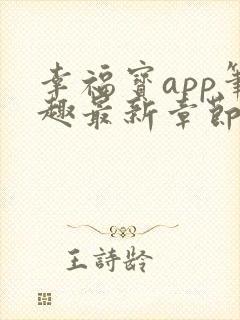 幸福寶app筆
趣最新章節
王詩齡